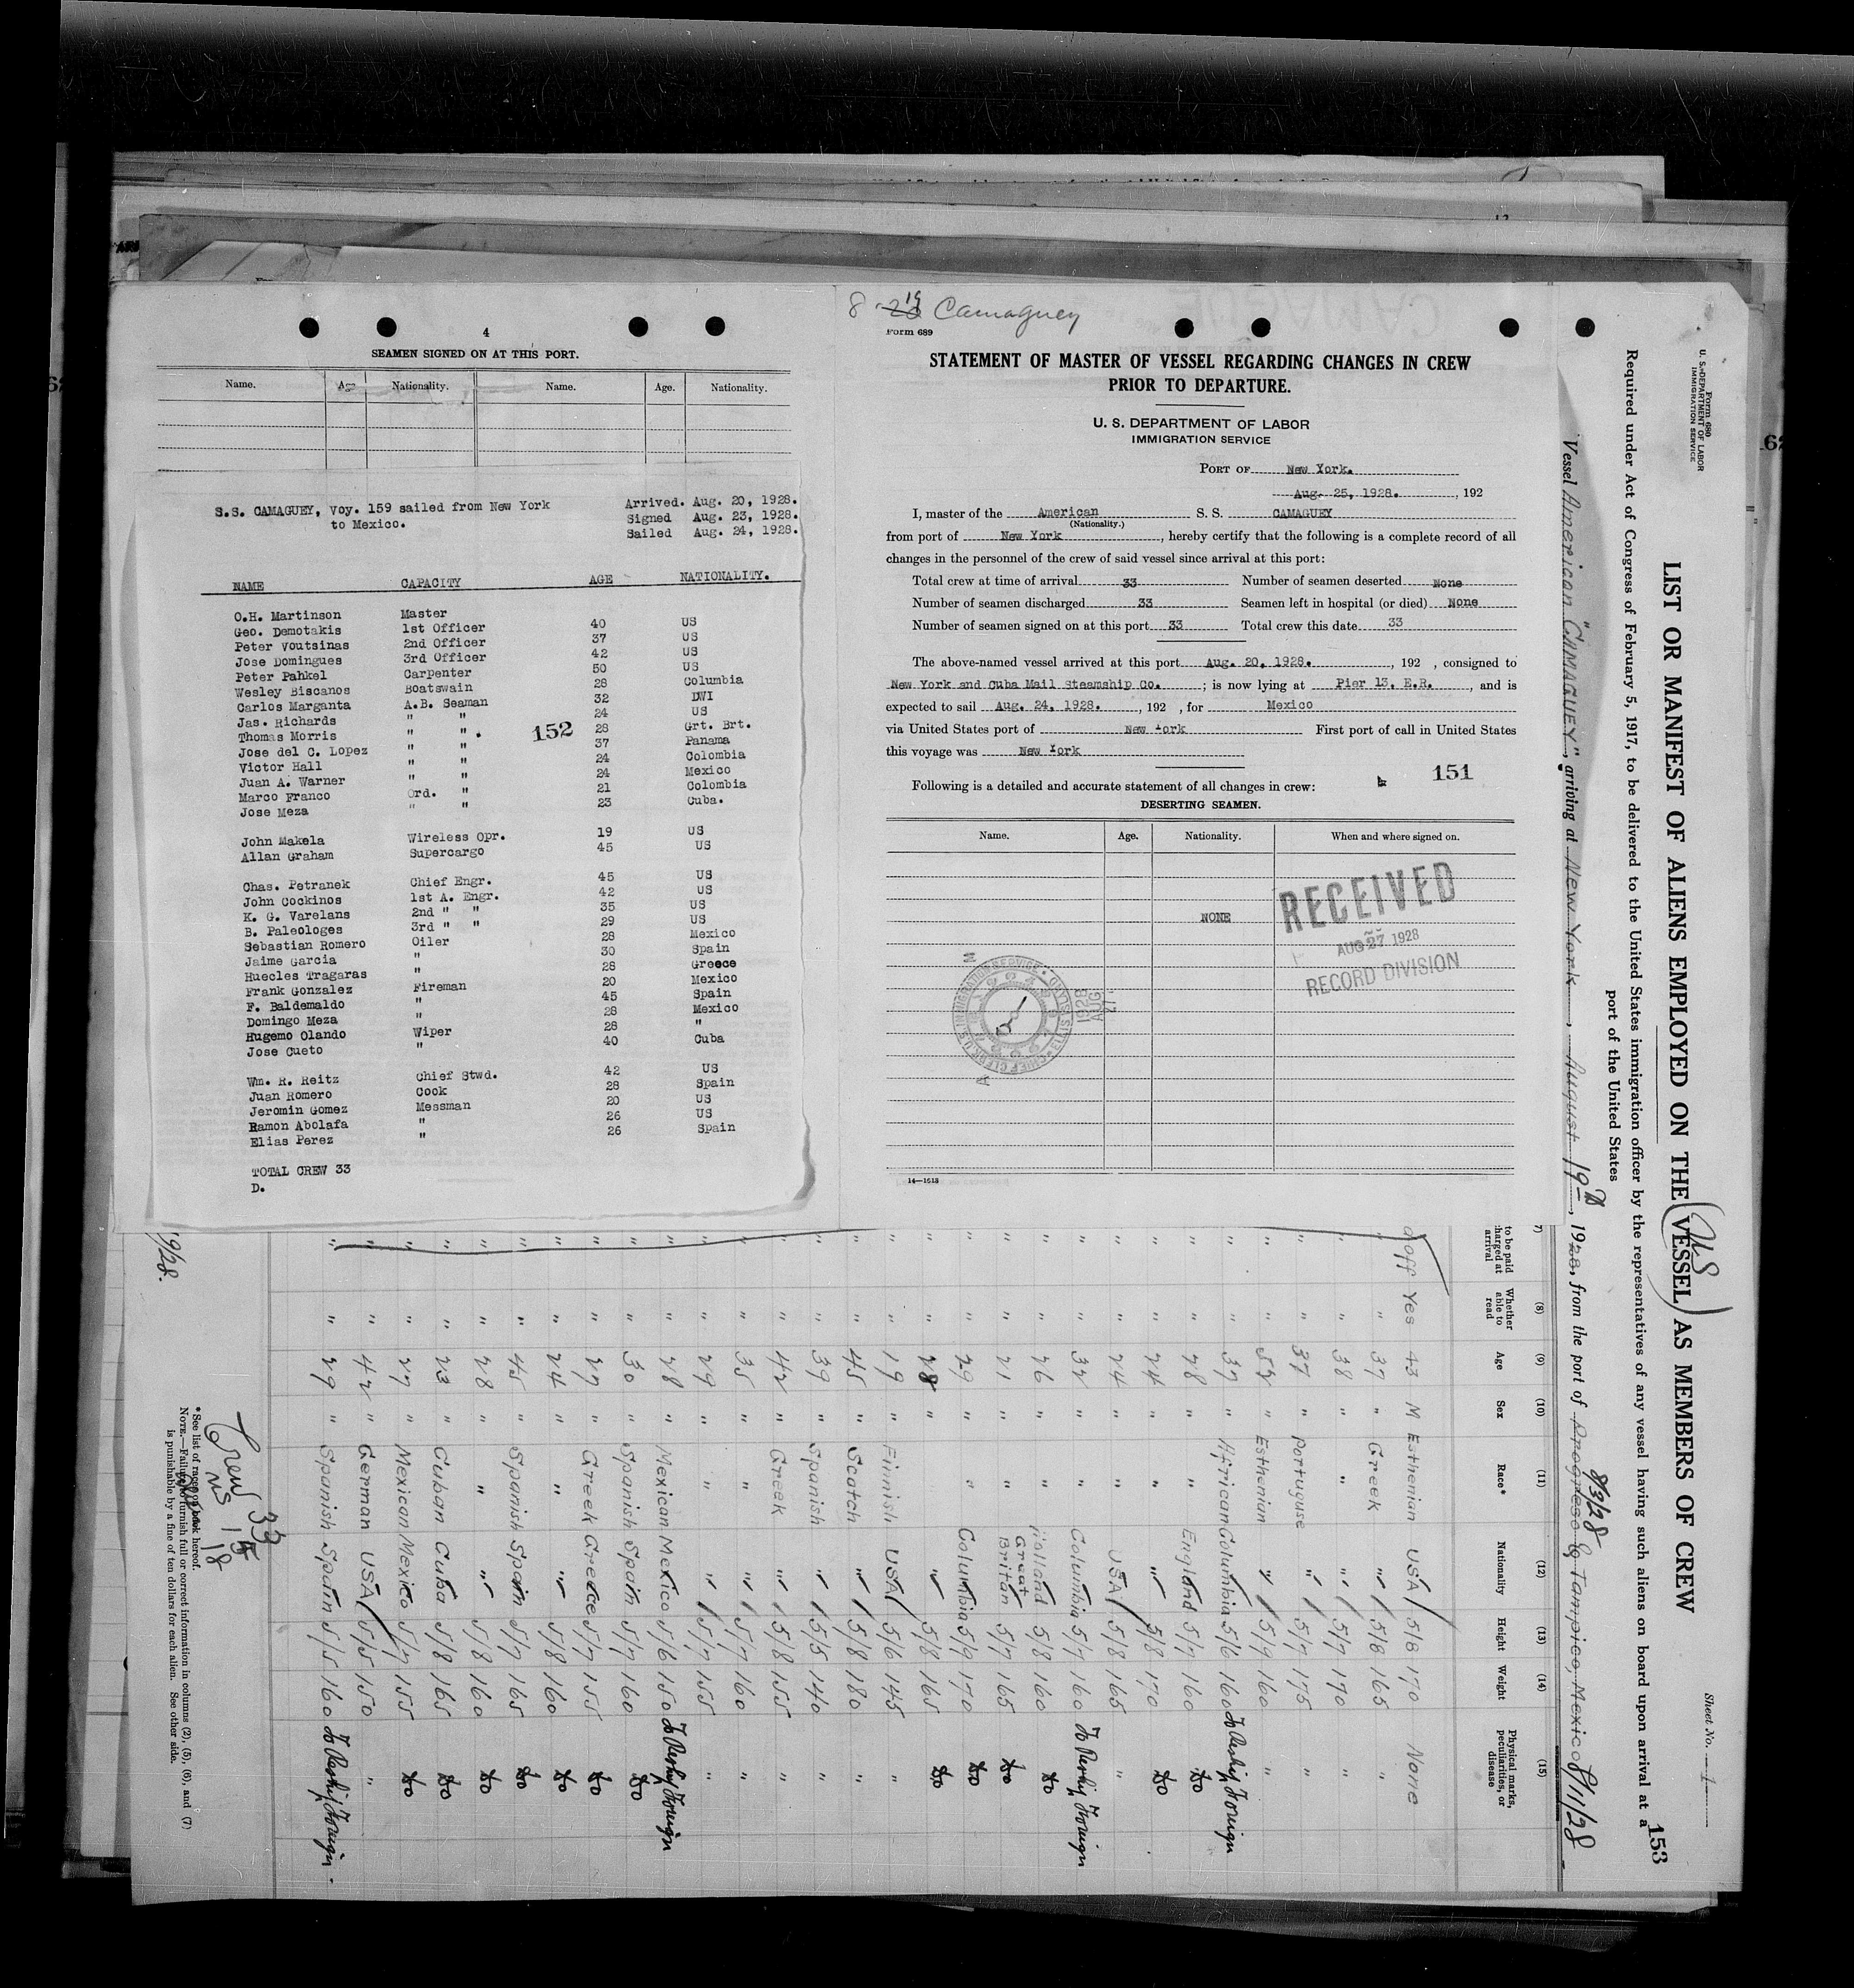 4
SEAMEN SIGNED ON AT THIS PORT.
Name. Age Nationality. Name. Age. Nationality.
S.S. CAMAGUEY, Voy. 159 sailed from New York
to Mexico.
Arrived. Aug. 20, 1928.
Signed Aug. 23, 1928.
Sailed Aug. 24, 1928.
NAME CAPACITY AGE NATIONALITY.
O.H. Martinson Master 40 US
Geo. Demotakis 1st Officer 37 US
Peter Voutsinas 2nd Officer 42 US
Jose Domingues 3rd Officer 50 US
Peter Pahkel Carpenter 28 Columbia
Wesley Biscanos Boatswain 32 DWI
Carlos Marganta A.B. Seaman 24 US
Jas. Richards " " 28 Grt. Brt.
Thomas Morris " " . 37 Panama
152
Jose del C. Lopez " " 24 Colombia
Victor Hall " " 24 Mexico
Juan A. Warner " " 21 Colombia
Marco Franco Ord. " 23 Cuba.
Jose Meza " "
John Makela Wireless Opr. 19 US
Allan Graham Supercargo 45 US
Chas. Petranek Chief Engr. 45 US
John Cockinos 1st A. Engr. 42 US
K. G. Varelans 2nd " " 35 US
B. Paleologes 3rd " " 29 US
Sebastian Romero Oiler 28 Mexico
Jaime Garcia " 30 Spain
Huecles Tragaras " 28 Greece
Frank Gonzalez Fireman 20 Mexico
F. Baldemaldo " 45 Spain
Domingo Meza " 28 Mexico
Hugemo Olando Wiper 28 "
Jose Cueto " 40 Cuba
Wm. R. Reitz Chief Stwd. 42 US
Juan Romero Cook 28 Spain
Jeromin Gomez Messman 20 US
Ramon Abolafa " 26 US
Elias Perez " 26 Spain
TOTAL CREW 33
D.
8 19 Camaguey
Form 689
STATEMENT OF MASTER OF VESSEL REGARDING CHANGES IN CREW
PRIOR TO DEPARTURE.
U. S. DEPARTMENT OF LABOR
IMMIGRATION SERVICE
PORT OF New York.
Aug. 25, 1928. , 192
I, master of the American S. S. CAMAGUEY
(Nationality.)
from port of New York , hereby certify that the following is a complete record of all
changes in the personnel of the crew of said vessel since arrival at this port:
Total crew at time of arrival 33 Number of seamen deserted None
Number of seamen discharged 33 Seamen left in hospital (or died) None
Number of seamen signed on at this port 33 Total crew this date 33
The above-named vessel arrived at this port Aug. 20, 1928. , 192 , consigned to
New York and Cuba Mail Steamship Co. ; is now lying at Pier 13, E.R. , and is
expected to sail Aug. 24, 1928. , 192 , for Mexico
via United States port of New York First port of call in United States
this voyage was New York
151
Following is a detailed and accurate statement of all changes in crew:
DESERTING SEAMEN.
Name. Age. Nationality. When and where signed on.
NONE
RECEIVED
AUG 27 1928
RECORD DIVISION
14—1613
Form 689
U. S. DEPARTMENT OF LABOR
IMMIGRATION SERVICE
Sheet No. 1
LIST OR MANIFEST OF ALIENS EMPLOYED ON THE VESSEL AS MEMBERS OF CREW
US
153
Required under Act of Congress of February 5, 1917, to be delivered to the United States immigration officer by the representatives of any vessel having such aliens on board upon arrival at a
port of the United States
Vessel American "CAMAGUEY", arriving at New York, August 19th, 1928, from the port of Progreso & Tampico, Mexico 8/11/28
8/3/28
(8) (9) (10) (11) (12) (13) (14) (15)
to be paid
arrival
Whether able to read
Age
Sex
Race*
Nationality
Height
Weight
Physical marks, peculiarities, or disease
off Yes 43 M Esthenian USA 5/8 170 None
" " 37 " Greek " 5/8 165 "
" " 38 " " " 5/7 170 "
" " 37 " Portuguse " 5/7 175 "
" " 52 " Esthenian " 5/9 160 "
" " 37 " African Columbia 5/6 160 To Reship Foreign
" " 28 " " England 5/7 160 do
" " 24 " " " 5/8 170 do
" " 24 " " USA 5/8 165 "
" " 32 " " Columbia 5/7 160 To Reship Foreign
" " 26 " " Holland 5/8 160 do
" " 21 " " Great Britan 5/7 165 do
" " 29 " " Columbia 5/9 170 do
" " 28 " " 5/8 165 do
" " 19 " Finnish USA 5/6 145 "
" " 45 " Scotch " 5/8 180 "
" " 39 " Spanish " 5/5 140 "
" " 42 " Greek " 5/8 155 "
" " 35 " " " 5/7 160 "
" " 29 " " " 5/7 155 "
" " 28 " Mexican Mexico 5/6 150 To Reship Foreign
" " 30 " Spanish Spain 5/7 160 do
" " 27 " Greek Greece 5/7 155 do
" " 24 " " " 5/8 160 do
" " 45 " Spanish Spain 5/7 165 do
" " 28 " " " 5/8 160 do
" " 23 " Cuban Cuba 5/8 165 do
" " 27 " Mexican Mexico 5/7 155 do
" " 42 " German USA 5/5 150 "
" " 29 " Spanish Spain 5/5 160 To Reship Foreign
Crew 33
US 15
18
*See list of races on back hereof.
NOTE.—Failure to furnish full or correct information in columns (2), (5), (6), and (7)
is punishable by a fine of ten dollars for each alien. See other side.
9/28.